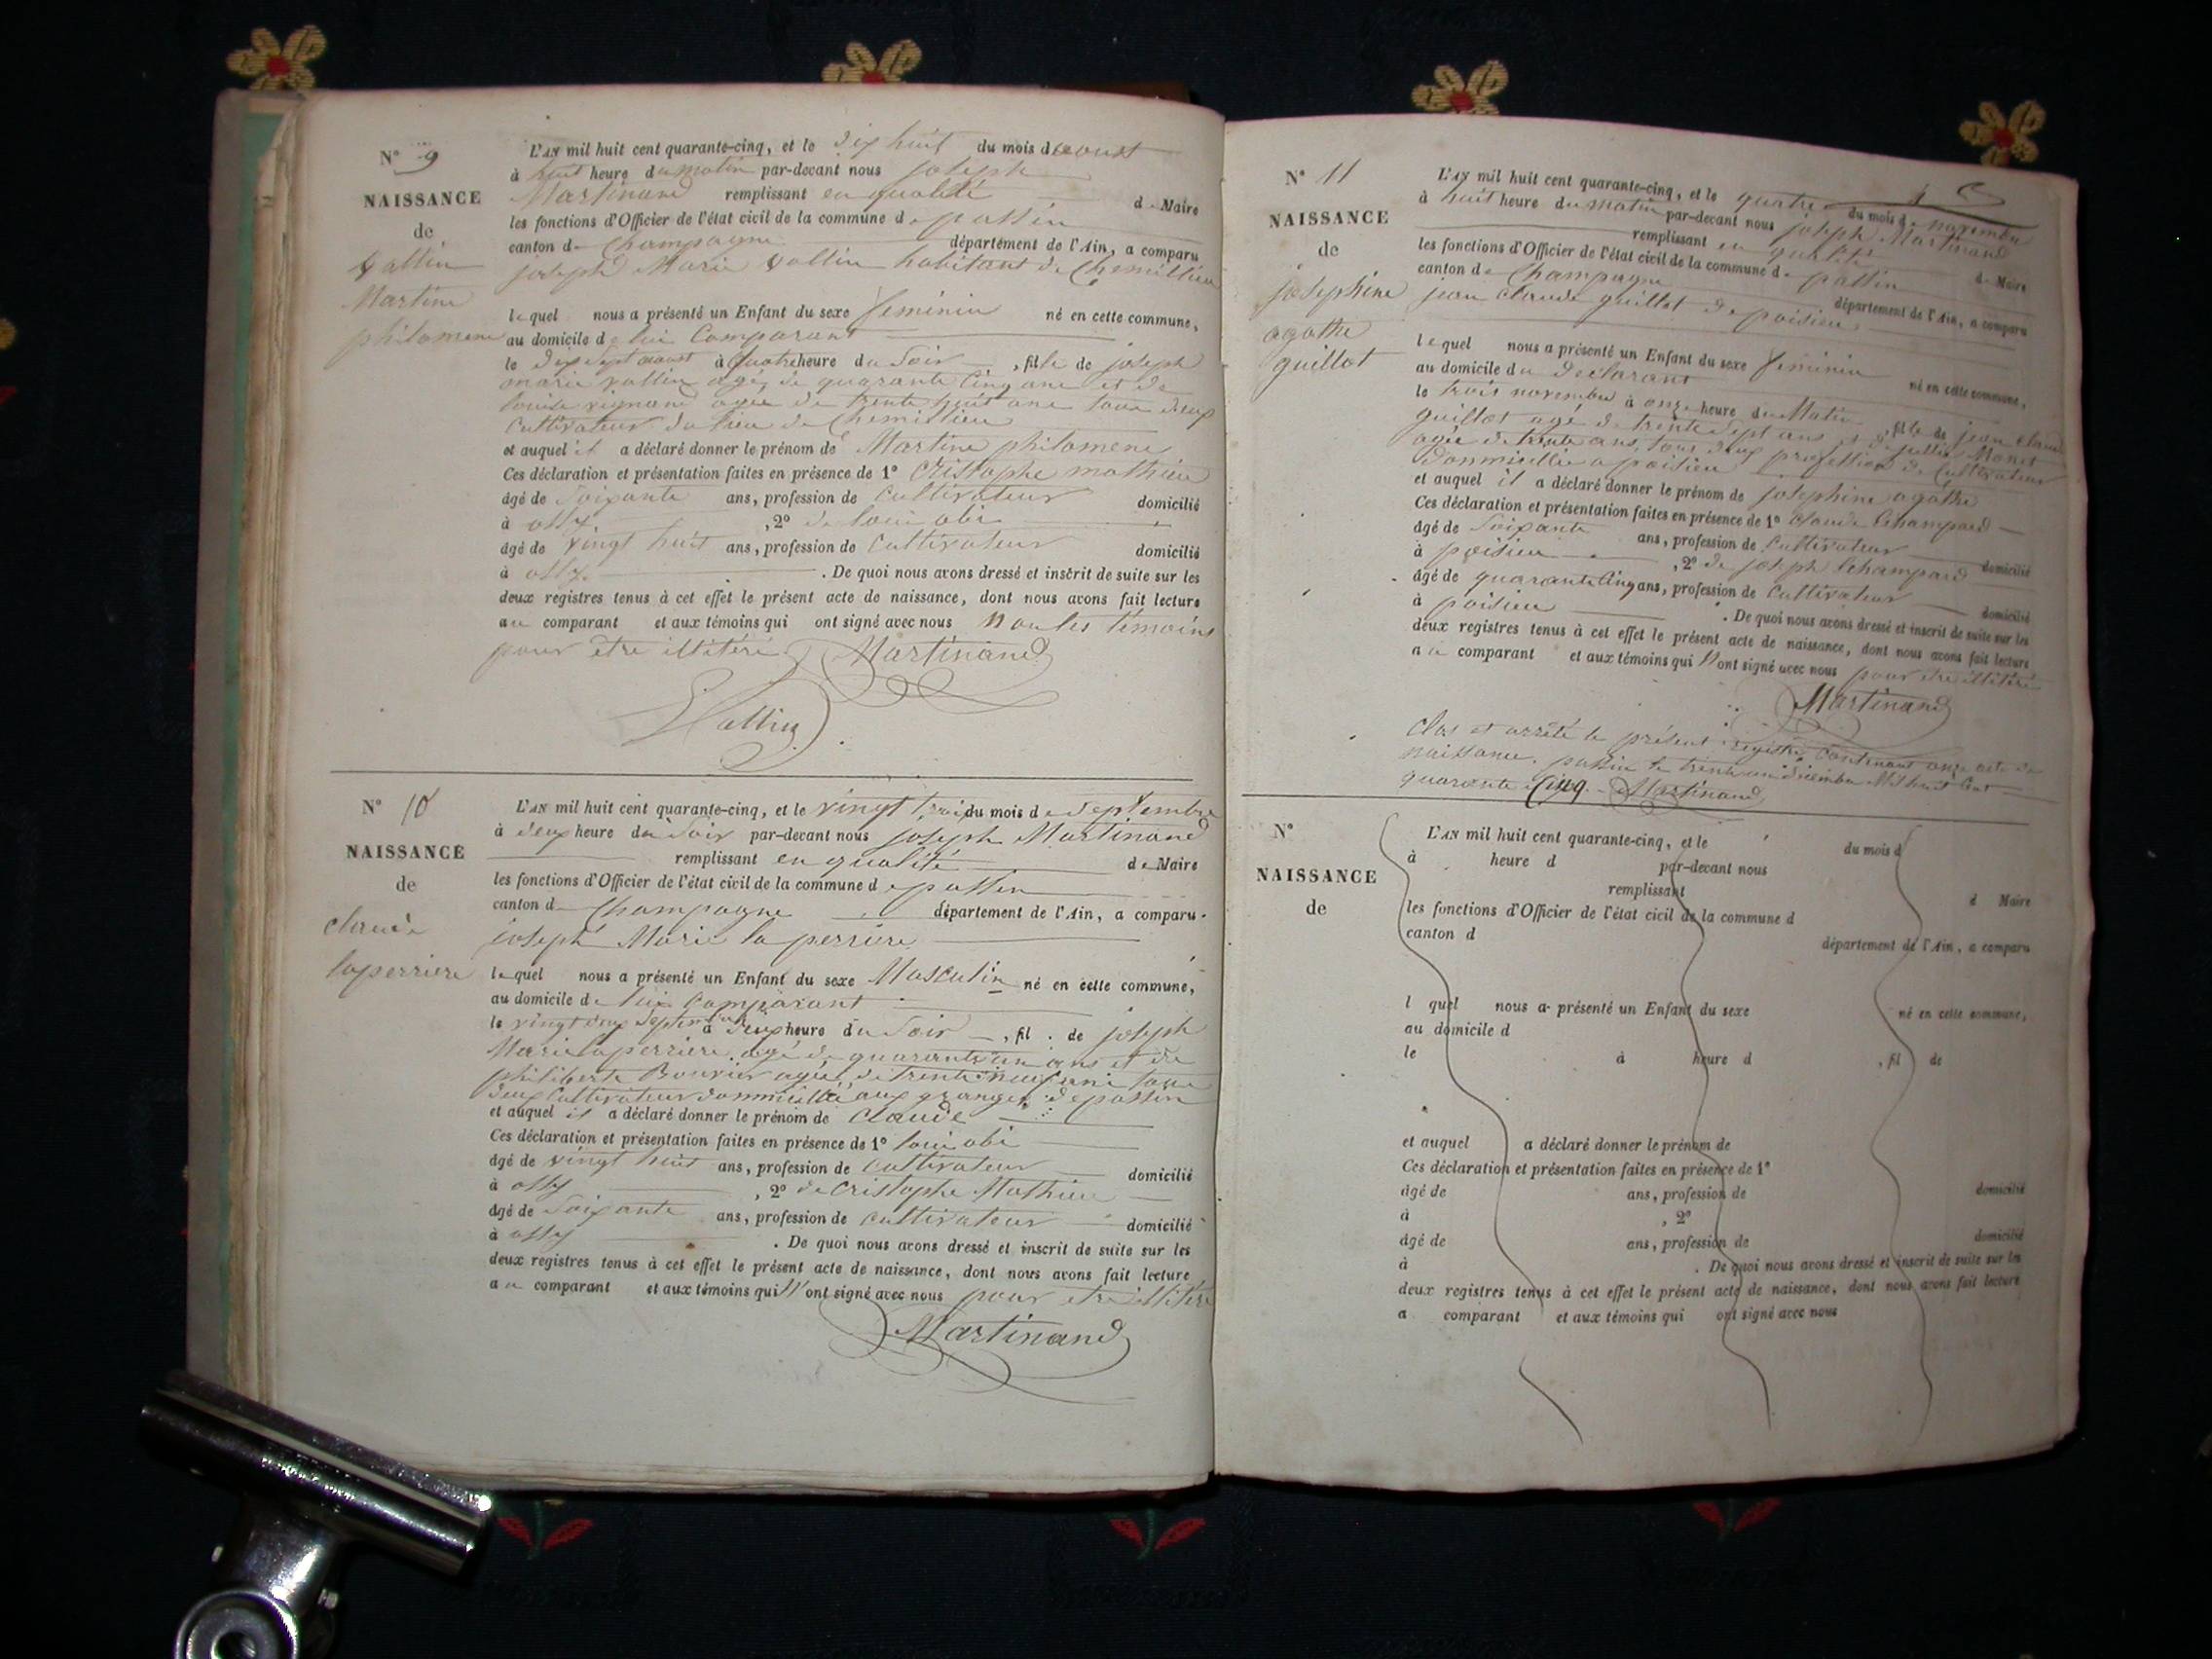 N° 9
NAISSANCE
de
Vallin
Martine
philomene
L'AN mil huit cent quarante-cinq, et le dix huit du mois d aoust
à huit heure du matin par-devant nous joseph
Martinand remplissant en qualité de Maire
les fonctions d'Officier de l'état civil de la commune de passin
canton de Champagne département de l'Ain, a comparu
joseph Marie Vallin habitant de Chemillieu
lequel nous a présenté un Enfant du sexe feminin né en cette commune,
au domicile de lui Comparant
le dix sept aoust à quatre heure du Soir, fille de joseph
marie vallin agé de quarante Cinq ans et de
louise vignand agée de trente huit ans tous deux
Cultivateur du lieu de Chemillieu
et auquel il a déclaré donner le prénom de Martine philomene
Ces déclaration et présentation faites en présence de 1° Cristophe mathieu
âgé de Soixante ans, profession de Cultivateur domicilié
à ossy, 2° de loui obi
âgé de vingt huit ans, profession de Cultivateur domicilié
à ossy. De quoi nous avons dressé et inscrit de suite sur les
deux registres tenus à cet effet le présent acte de naissance, dont nous avons fait lecture
au comparant et aux témoins qui ont signé avec nous Non les témoins
pour être illitéré Martinand
Vallin
N° 10
NAISSANCE
de
claude
laperriere
L'AN mil huit cent quarante-cinq, et le vingt trois du mois de Septembre
à deux heure du Soir par-devant nous joseph Martinand
remplissant en qualité de Maire
les fonctions d'Officier de l'état civil de la commune de passin
canton de Champagne département de l'Ain, a comparu
joseph Marie la perriere
lequel nous a présenté un Enfant du sexe Masculin né en cette commune,
au domicile de lui Comparant
le vingt deux Septembre à deux heure du Soir, fil de joseph
Marie laperriere agé de quarante un ans et de
philiberte Bouvier agée de trente neuf ans tous
deux Cultivateur dommicilié aux granges de passin
et auquel il a déclaré donner le prénom de Claude
Ces déclaration et présentation faites en présence de 1° loui obi
âgé de vingt huit ans, profession de Cultivateur domicilié
à ossy, 2° de Cristophe Mathieu
âgé de Soixante ans, profession de cultivateur domicilié
à ossy. De quoi nous avons dressé et inscrit de suite sur les
deux registres tenus à cet effet le présent acte de naissance, dont nous avons fait lecture
au comparant et aux témoins qui N'ont signé avec nous pour etre illitéré
Martinand
N° 11
NAISSANCE
de
josephine
agathe
guillot
L'AN mil huit cent quarante-cinq, et le quatre du mois de novembre
à huit heure du matin par-devant nous joseph Martinand
remplissant en qualité de Maire
les fonctions d'Officier de l'état civil de la commune de passin
canton de Champagne département de l'Ain, a comparu
jean Claude guillot de poisieu
lequel nous a présenté un Enfant du sexe feminin né en cette commune,
au domicile du declarant
le trois novembre à onze heure du Matin, fille de jean claude
guillot agé de trente sept ans et de Monet
agée de trente ans, tous deux profession de Cultivateur
dommicilié a poisieu
et auquel il a déclaré donner le prénom de josephine agathe
Ces déclaration et présentation faites en présence de 1° Claude Champard
âgé de Soixante ans, profession de Cultivateur domicilié
à poisieu, 2° de joseph Champard
âgé de quarante Cinq ans, profession de Cultivateur domicilié
à poisieu. De quoi nous avons dressé et inscrit de suite sur les
deux registres tenus à cet effet le présent acte de naissance, dont nous avons fait lecture
au comparant et aux témoins qui N'ont signé avec nous pour etre illitéré
Martinand
Clos et arrêté le présent registre Contenant onze acte de
naissance. passin le trente un décembre Mil huit Cent
quarante Cinq. Martinand
N°
NAISSANCE
de
L'AN mil huit cent quarante-cinq, et le du mois d
à heure d par-devant nous
remplissant d Maire
les fonctions d'Officier de l'état civil de la commune d
canton d département de l'Ain, a comparu
l quel nous a présenté un Enfant du sexe né en cette commune,
au domicile d
le à heure d , fil de
et auquel a déclaré donner le prénom de
Ces déclaration et présentation faites en présence de 1°
âgé de ans, profession de domicilié
à , 2°
âgé de ans, profession de domicilié
à . De quoi nous avons dressé et inscrit de suite sur les
deux registres tenus à cet effet le présent acte de naissance, dont nous avons fait lecture
a comparant et aux témoins qui ont signé avec nous